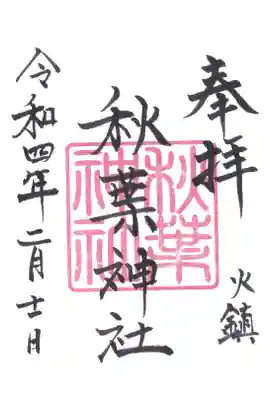 奉拝
火鎮
秋葉神社
秋葉
神社
令和四年二月十一日